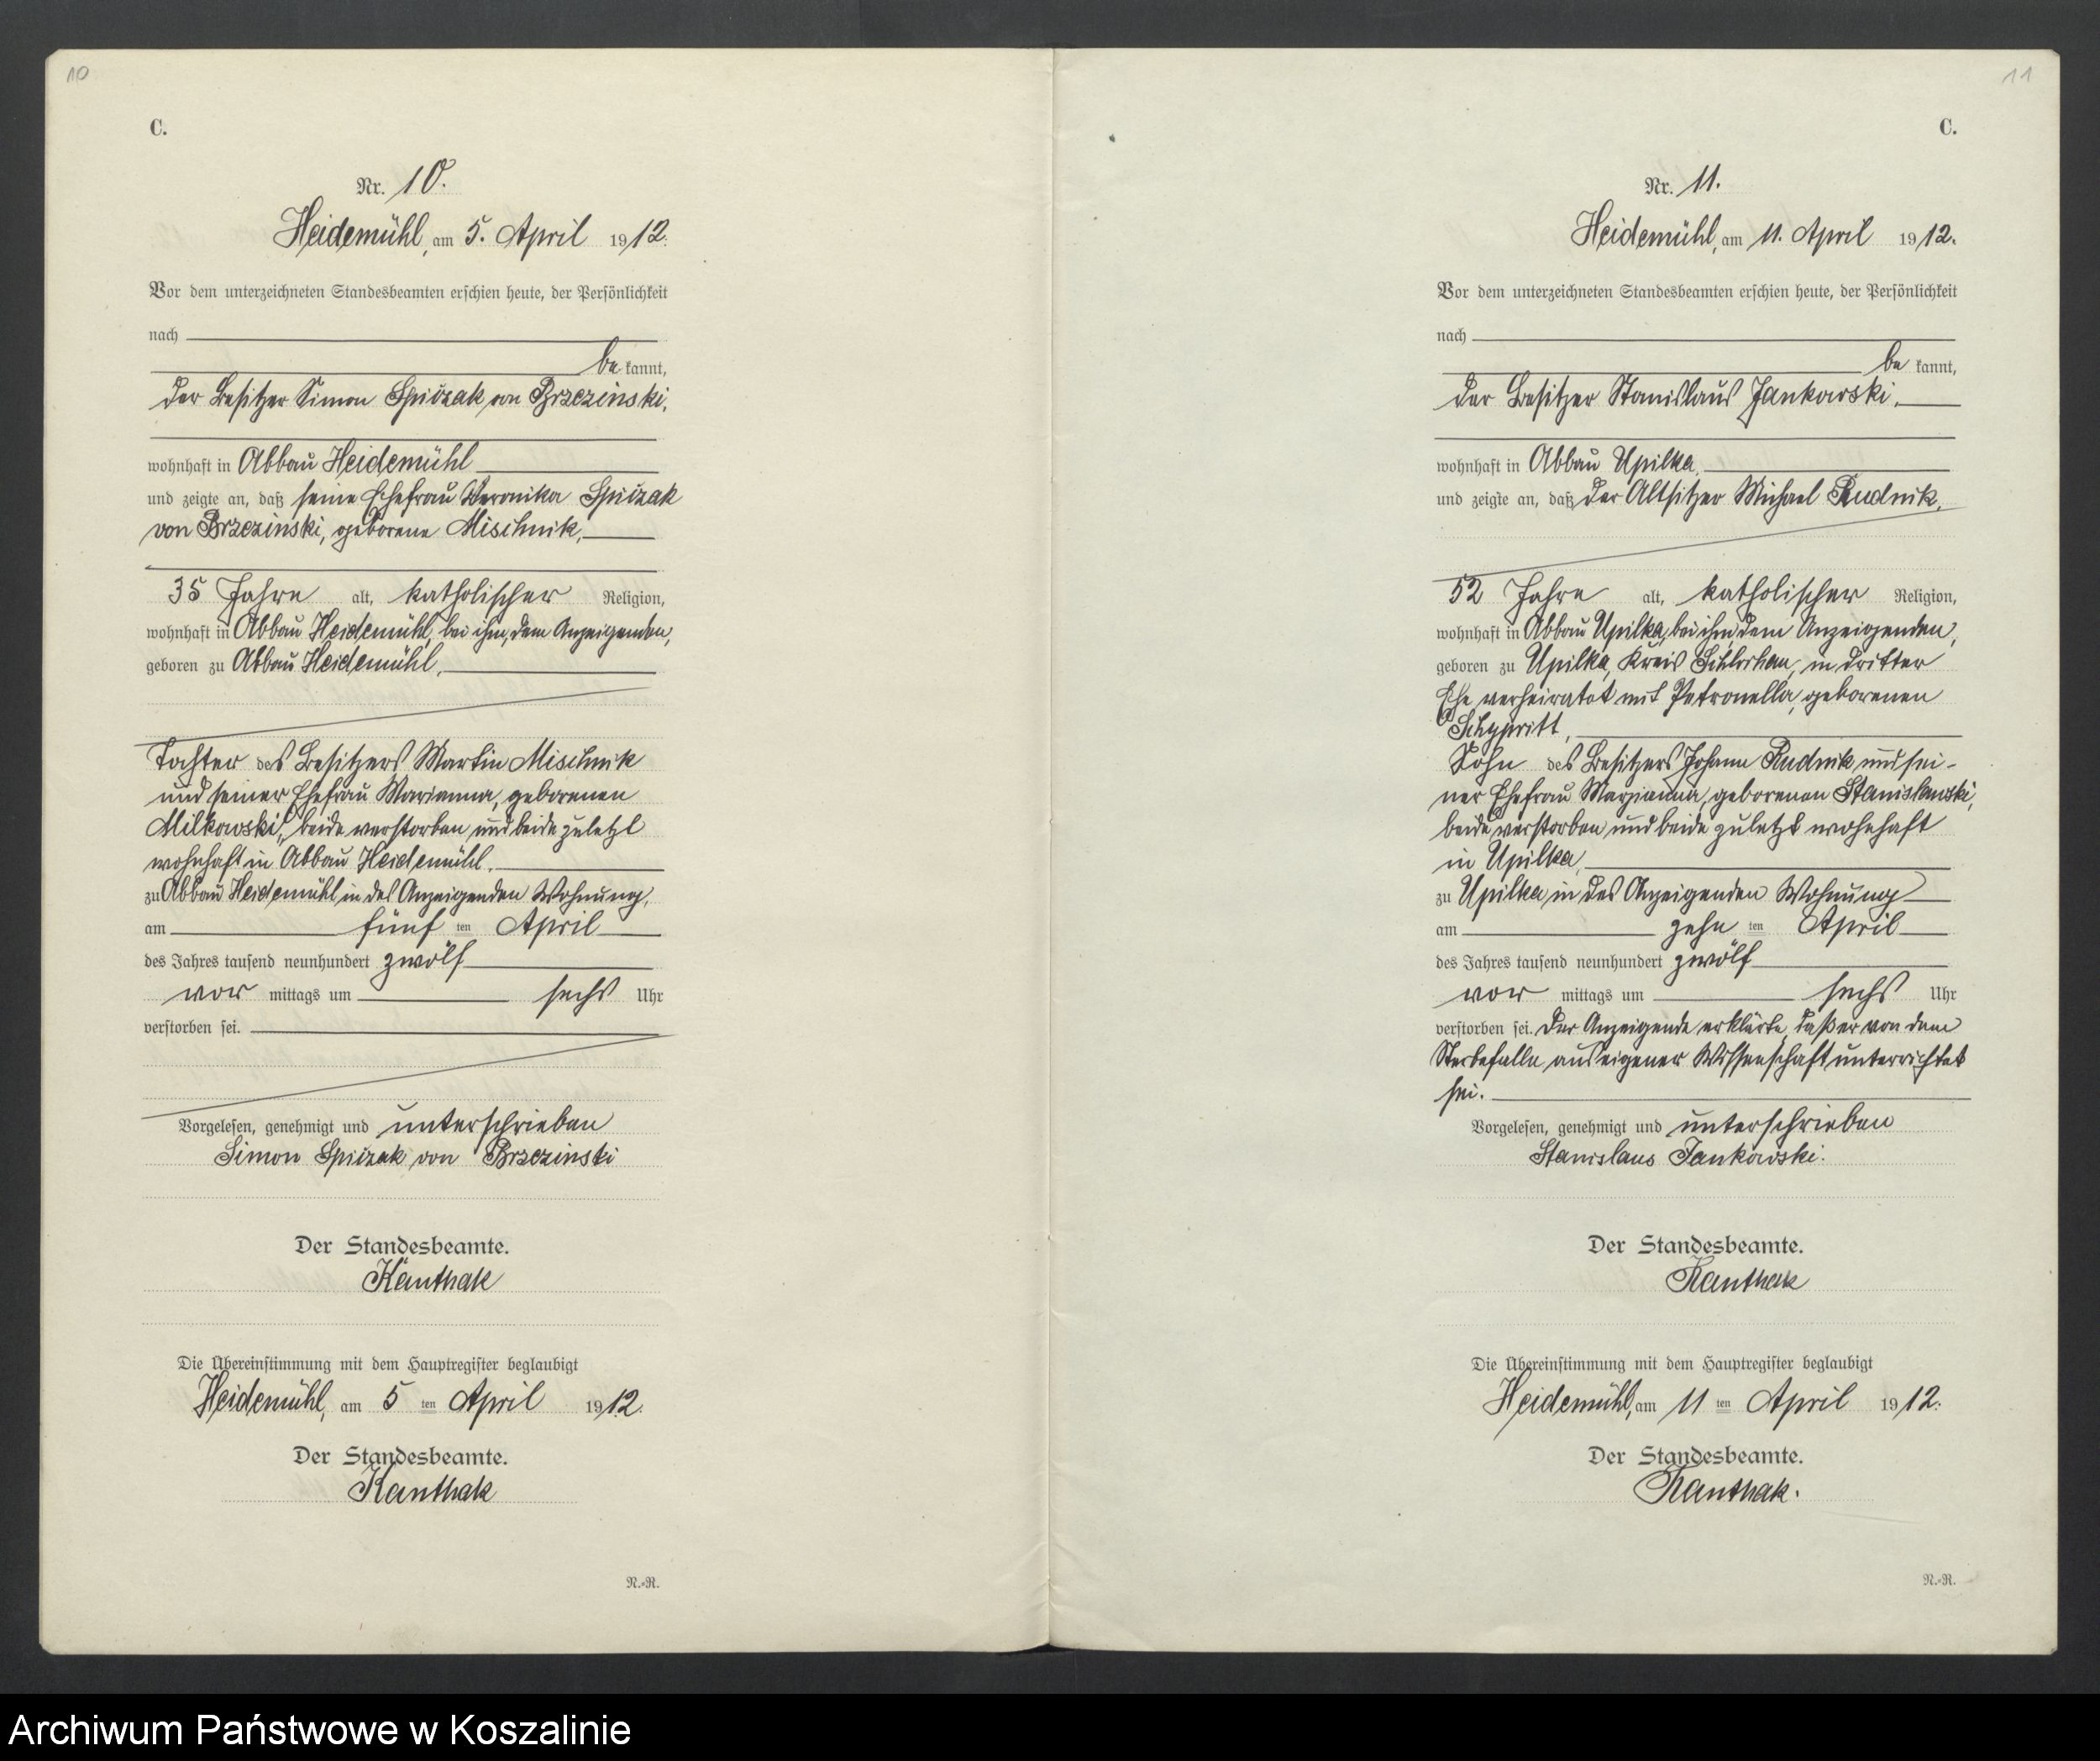 10
C.
Nr. 10.
Heidemühl, am 5. April 1912.
Vor dem unterzeichneten Standesbeamten erschien heute, der Persönlichkeit
nach
be kannt,
der Besitzer Simon Spiczak von Brzezinski,
wohnhaft in Abbau Heidemühl
und zeigte an, daß seine Ehefrau Weronika Spiczak
von Brzezinski, geborene Mischnik,
35 Jahre alt, katholischer Religion,
wohnhaft in Abbau Heidemühl, bei ihm, dem Anzeigenden,
geboren zu Abbau Heidemühl,
Tochter des Besitzers Martin Mischnik
und seiner Ehefrau Marianna, geborenen
Milkowski, beide verstorben und beide zuletzt
wohnhaft in Abbau Heidemühl,
zu Abbau Heidemühl in des Anzeigenden Wohnung,
am fünf ten April
des Jahres tausend neunhundert zwölf
vor mittags um sechs Uhr
verstorben sei.
Vorgelesen, genehmigt und unterschrieben
Simon Spiczak von Brzezinski
Der Standesbeamte.
Kanthak
Die Übereinstimmung mit dem Hauptregister beglaubigt
Heidemühl, am 5 ten April 1912.
Der Standesbeamte.
Kanthak
N.-R.
11
C.
Nr. 11.
Heidemühl, am 11. April 1912.
Vor dem unterzeichneten Standesbeamten erschien heute, der Persönlichkeit
nach
be kannt,
der Besitzer Stanislaus Jankowski,
wohnhaft in Abbau Upilka,
und zeigte an, daß der Altsitzer Michael Rudnik,
52 Jahre alt, katholischer Religion,
wohnhaft in Abbau Upilka, bei ihm dem Anzeigenden,
geboren zu Upilka, Kreis Schlochau, in dritter
Ehe verheiratet mit Petronella, geborenen
Schypritt,
Sohn des Besitzers Johann Rudnik und sei-
ner Ehefrau Marianna, geborenen Stanislawski,
beide verstorben und beide zuletzt wohnhaft
in Upilka,
zu Upilka in des Anzeigenden Wohnung
am zehn ten April
des Jahres tausend neunhundert zwölf
vor mittags um sechs Uhr
verstorben sei. Der Anzeigende erklärte, daß er von dem
Sterbefalle aus eigener Wissenschaft unterrichtet
sei.
Vorgelesen, genehmigt und unterschrieben
Stanislaus Jankowski.
Der Standesbeamte.
Kanthak
Die Übereinstimmung mit dem Hauptregister beglaubigt
Heidemühl, am 11 ten April 1912.
Der Standesbeamte.
Kanthak.
N.-R.
Archiwum Państwowe w Koszalinie